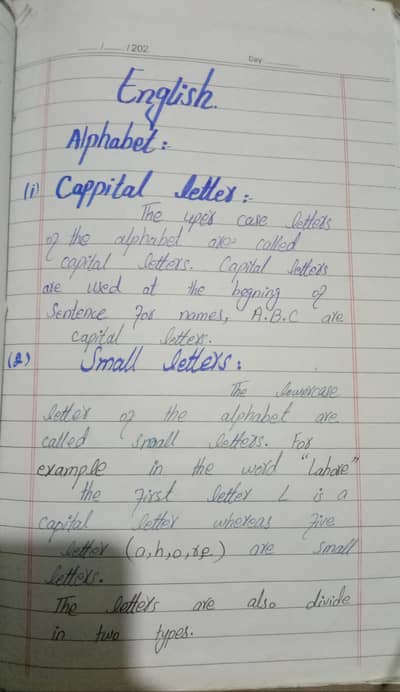 ___/___/202
Day ______
English.
Alphabet :-
(i) Cappital letter :-
The uper case letters
of the alphabet are called
capital letters. Capital letters
are used at the begning of
Sentence for names, A.B.C are
capital letters.
(2) Small letters :
The lowercase
letter of the alphabet are
called small letters. For
example in the word "Lahore"
the first letter L is a
capital letter whereas five
letter (a,h,o,re) are small
letters.
The letters are also divide
in two types.